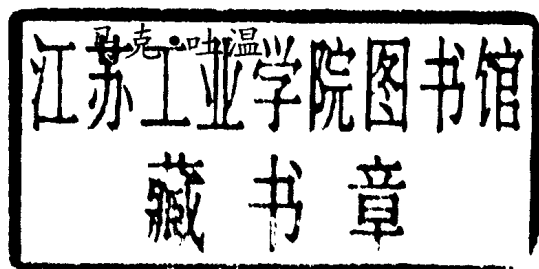 马克·吐温
江苏工业学院图书馆
藏书章